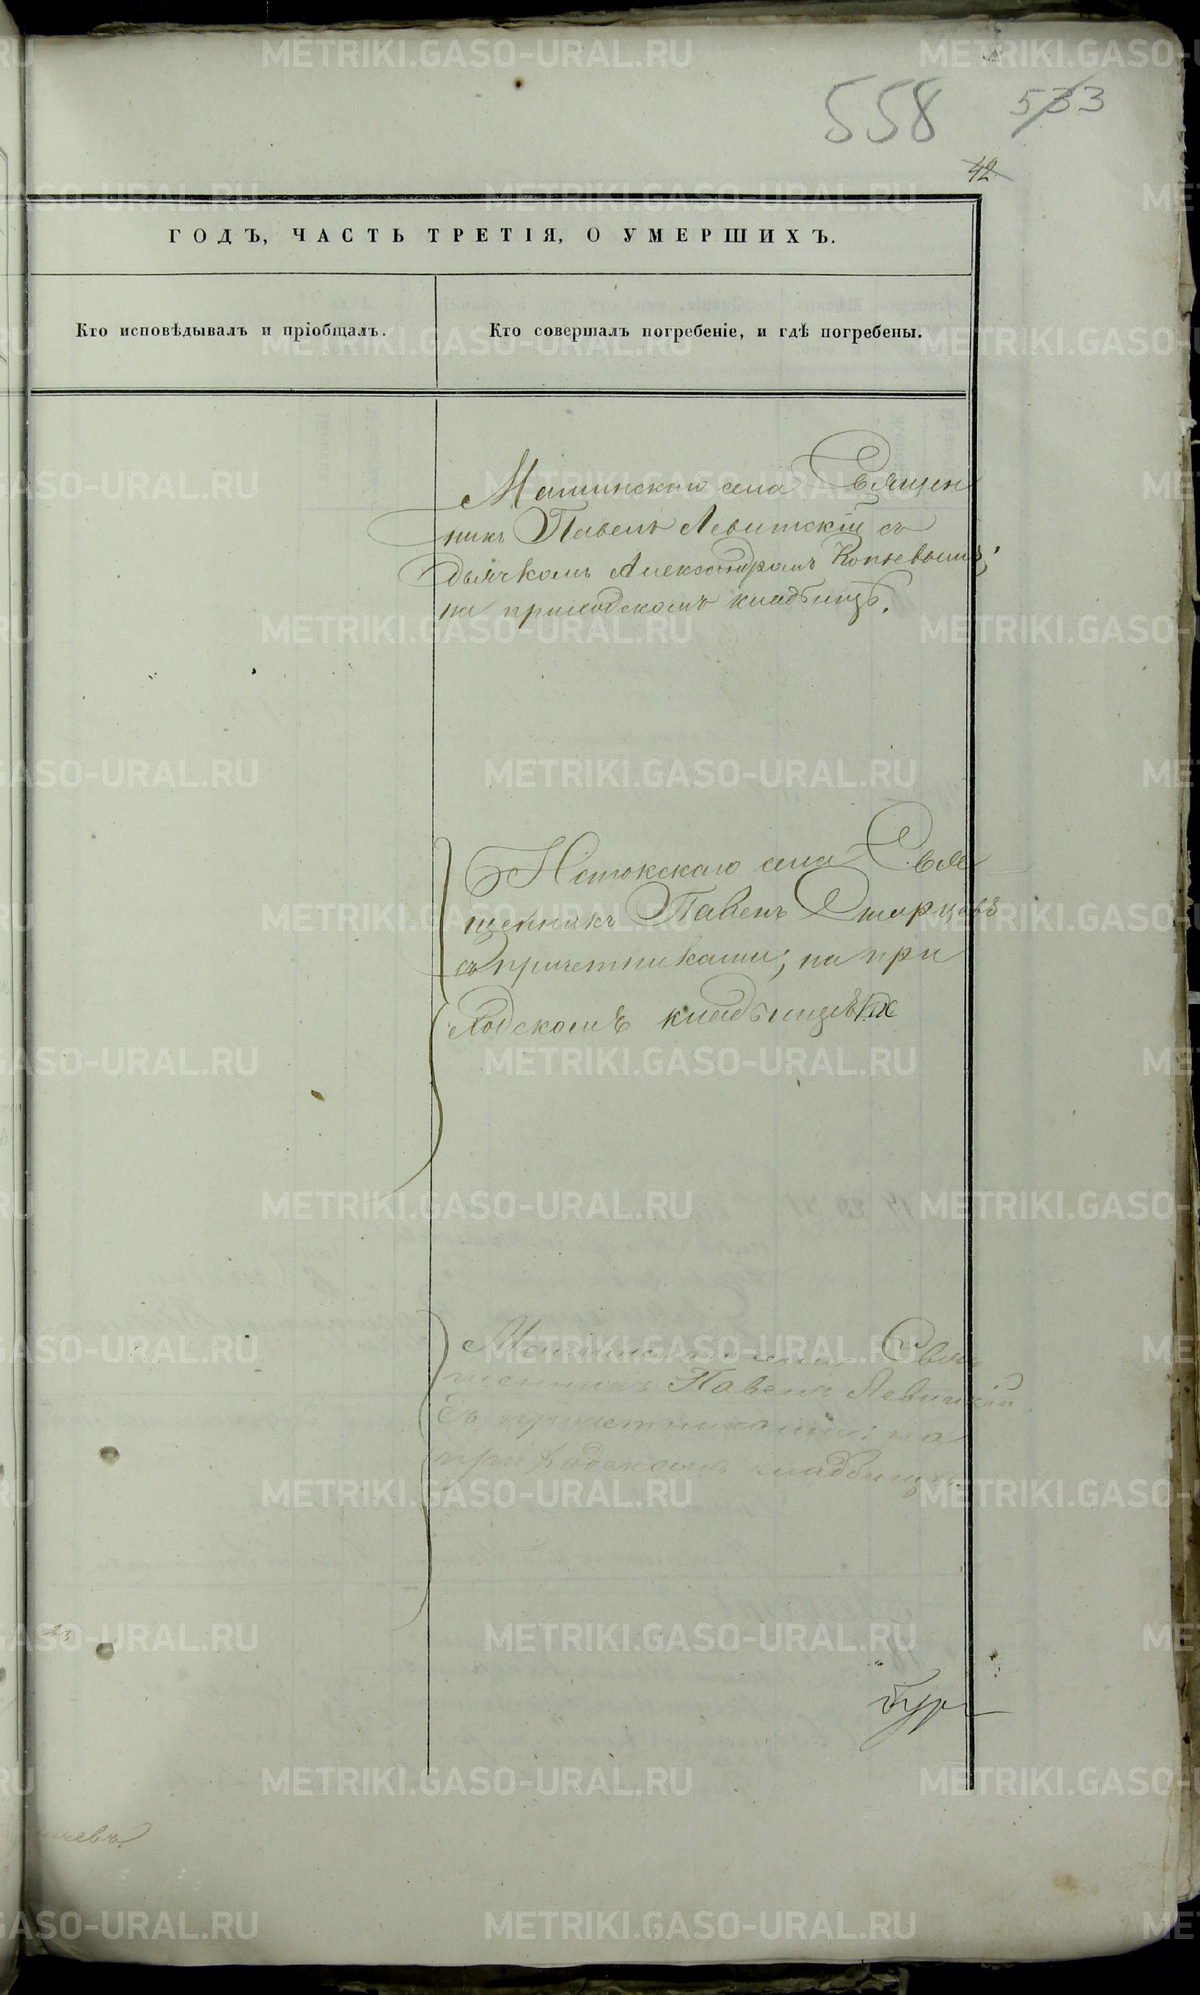 558 533
42
ГОДЪ, ЧАСТЬ ТРЕТІЯ, О УМЕРШИХЪ.
Кто исповѣдывалъ и пріобщалъ.
Кто совершалъ погребеніе, и гдѣ погребены.
села Священ
никъ Павелъ Левитскій съ
дьячкомъ Александромъ
на приходскомъ кладбищѣ.
Истокскаго села Свя
щенникъ Павелъ Старцевъ
съ причетниками; на при
ходскомъ кладбищѣ
села Свя
щенникъ Павелъ Левицкій
съ причетниками; на
приходскомъ кладбищѣ.
METRIKI.GASO-URAL.RU